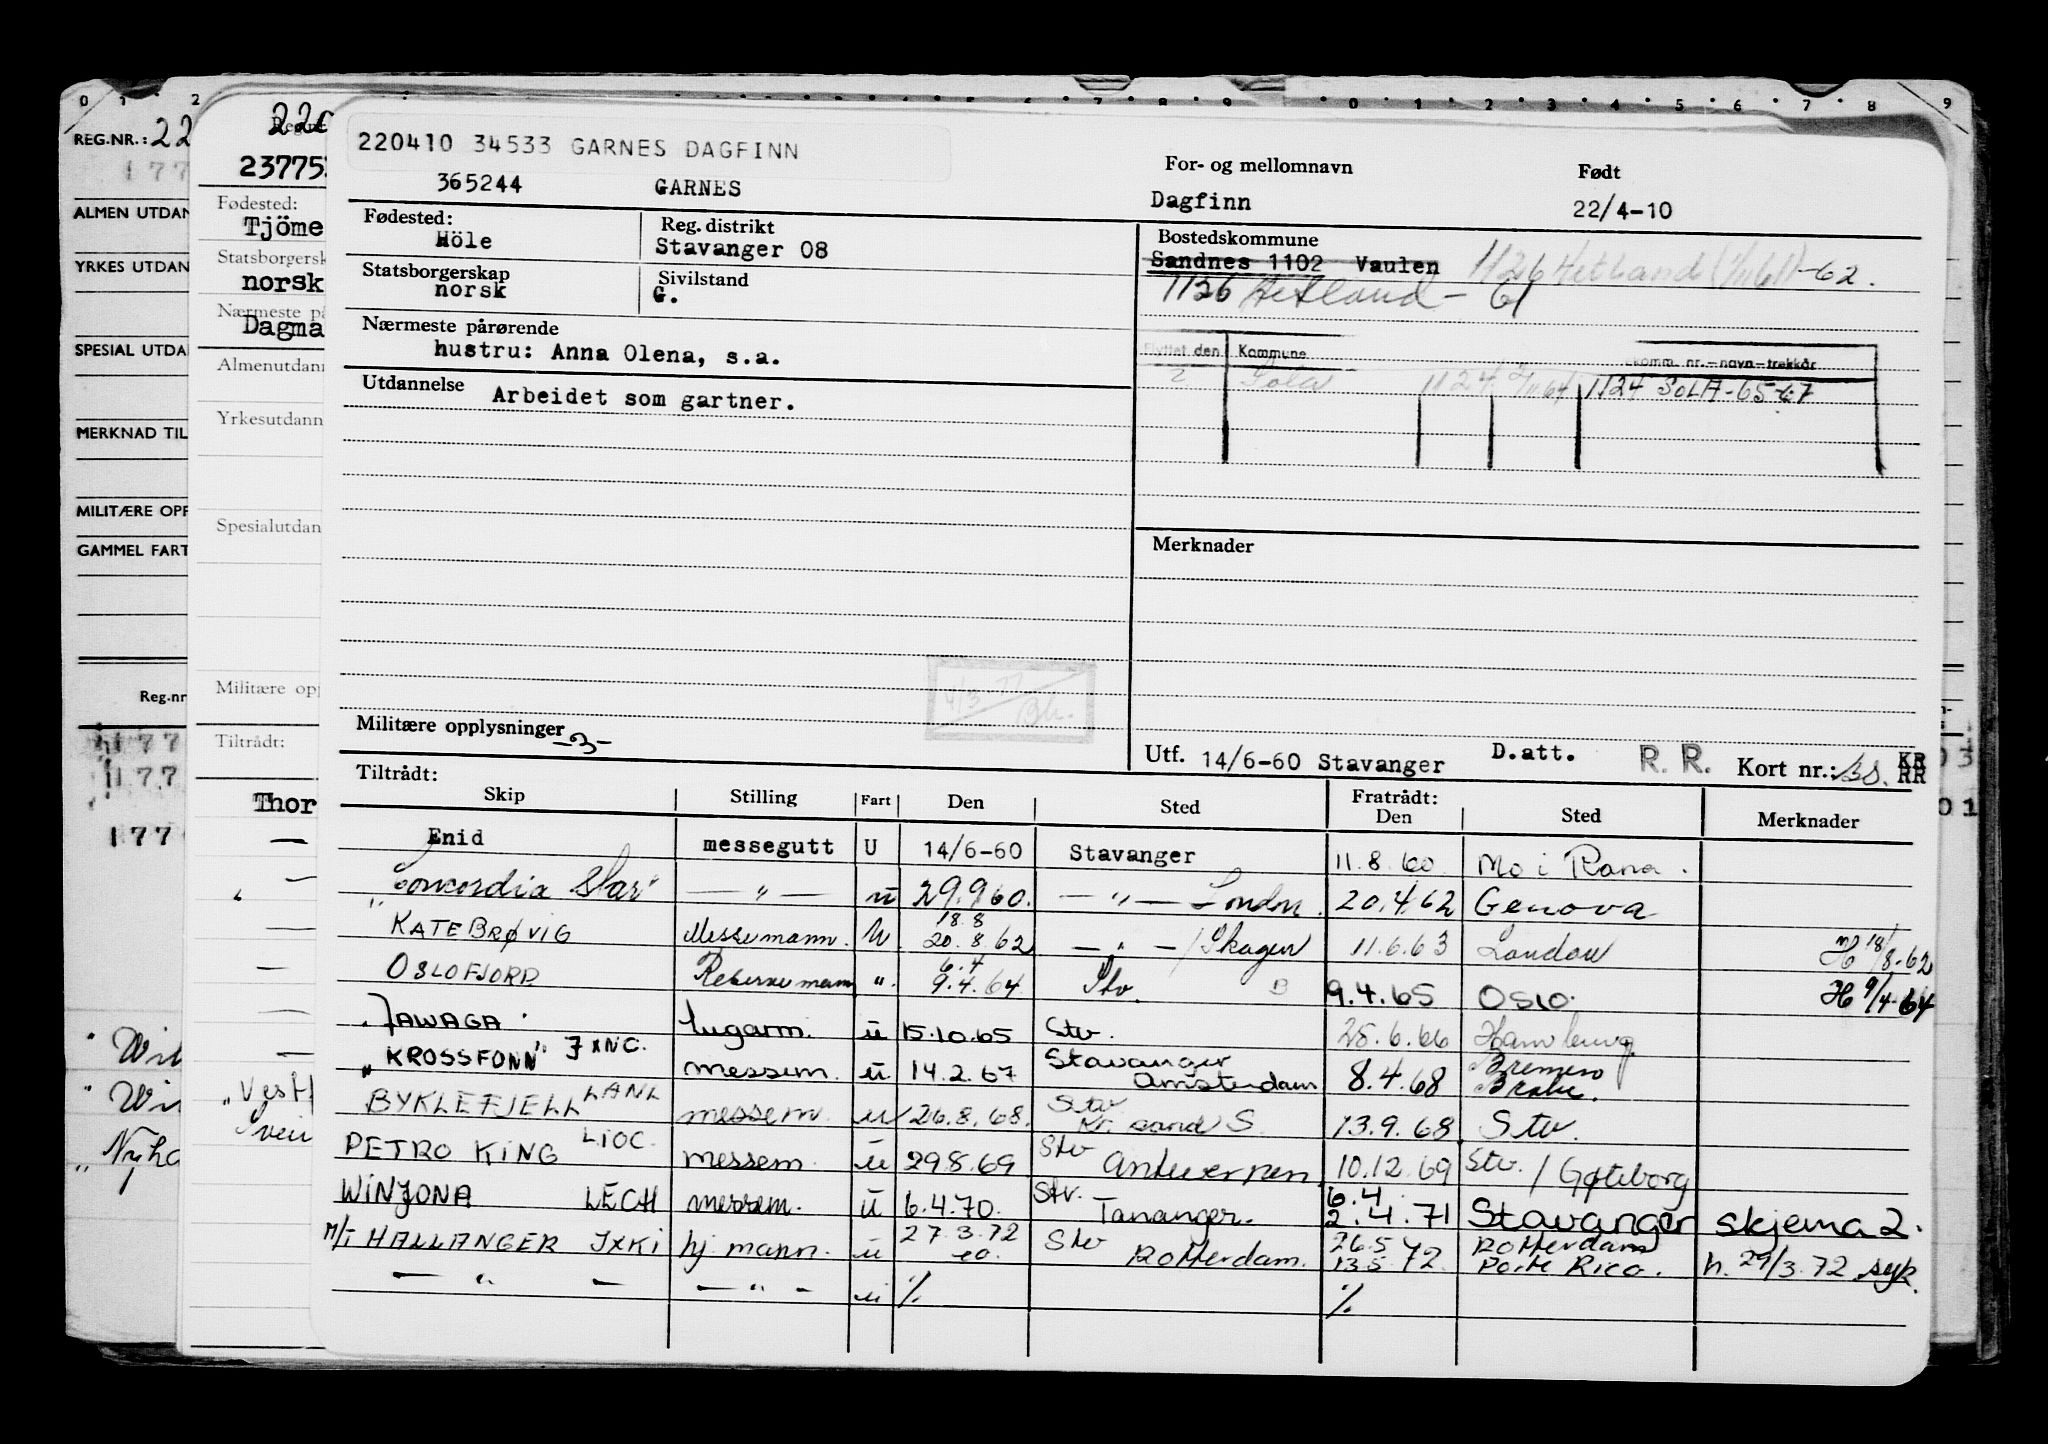 0 1 2 6 7 8 9 0 1 2 3 4 5 6 7 8 9
REG.NR.: 22
177
ALMEN UTDAN
YRKES UTDAN
SPESIAL UTDA
MERKNAD TIL
MILITÆRE OPP
GAMMEL FART
Reg.nr
177
177
177
" Wil
" Wi
" Nyho
220
237753
Fødested:
Tjöme
Statsborgersk
norsk
Nærmeste på
Dagma
Almenutdann
Yrkesutdann
Spesialutdan
Militære opp
Tiltrådt:
Thor
"Vestf
Svei
220410 34533 GARNES DAGFINN
365244 GARNES
For- og mellomnavn Født
Dagfinn 22/4-10
Fødested: Reg. distrikt Bostedskommune
Höle Stavanger 08 Sandnes 1102 Vaulen 1126 Hetland (1/1161)-62.
Statsborgerskap Sivilstand
norsk G. 1126 Hetland - 61
Nærmeste pårørende
hustru: Anna Olena, s.a.
Flyttet den Kommune komm. nr.-navn-trekkår
Sola 1124 2/11 64 1124 SOLA-65-67
Utdannelse Arbeidet som gartner.
Merknader
4/3-77
Militære opplysninger -3-
Utf. 14/6-60 Stavanger D.att. R. R. Kort nr.: KR RR
Tiltrådt: Fratrådt:
Skip Stilling Fart Den Sted Den Sted Merknader
Enid messegutt U 14/6-60 Stavanger 11.8.60 Mo i Rana.
"Concordia Star" — " — u 29.9.60. — " — London. 20.4.62 Genova
" KATE BRØVIG Messemann. U. 18.8 20.8.62 — " — / Skagen 11.6.63 London H 18/8-62
OSLOFJORD ". 6.4 9.4.64 Stv. B 9.4.65 OSLO. H 9/4-64
"JAWAGA" lugarm. u 15.10.65 Stv. 25.6.66 Hamburg
"KROSSFONN" JXNC. messem. u. 14.2.67 Stavanger Amsterdam 8.4.68 Bremen Brake.
BYKLEFJELL LANL messem. u 26.8.68. Stv Kr. sand S. 13.9.68 Stv.
PETRO KING LIOC. messem. u 29.8.69 Stv Antwerpen 10.12.69 Stv. / Gøteborg
WINJONA LECH messem. u 6.4.70. Stv. Tananger. 6.4. 2.4.71 Stavanger skjema 2.
M/T HALLANGER JXKI hj. mann. u 27.3.72 Stv Rotterdam. 26.5 13.5 72. Rotterdam Porto Rico. h. 29/3.72 syk.
— " — — " — u % %
03
01